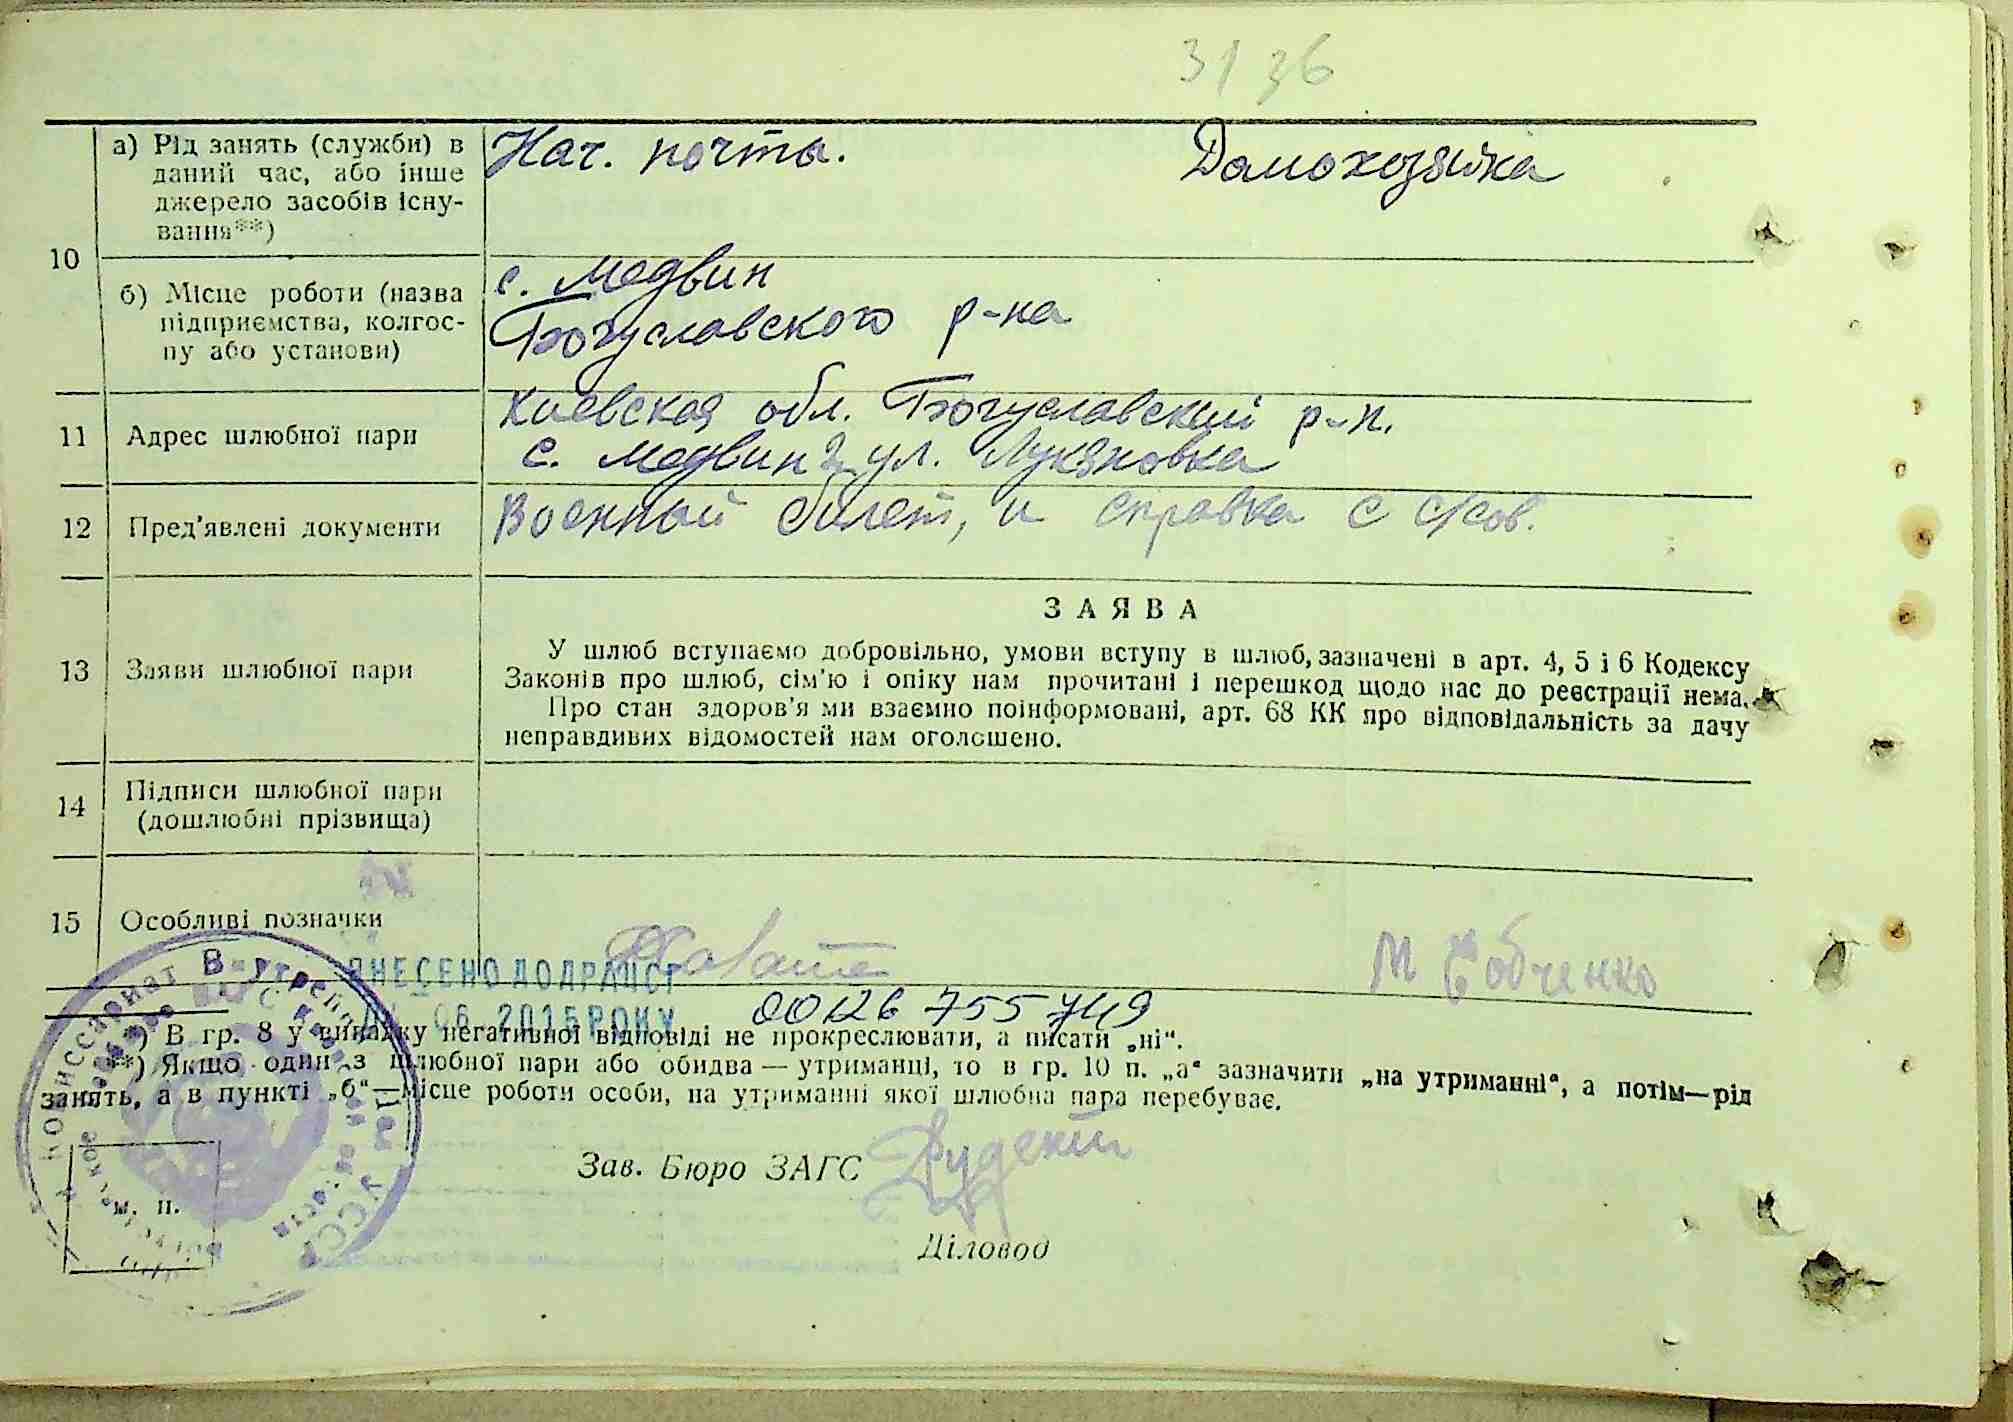 31 36
10
а) Рід занять (служби) в
даний час, або інше
джерело засобів існу-
вання**)
Нач. почты.
Домохозяйка
б) Місце роботи (назва
підприємства, колгос-
пу або установи)
с. Медвин
Богуславского р-на
11
Адрес шлюбної пари
Киевская обл. Богуславский р-н.
с. Медвин ул. Лукяновка
12
Пред'явлені документи
Военный билет, и справка с с/сов.
13
Заяви шлюбної пари
ЗАЯВА
У шлюб вступаємо добровільно, умови вступу в шлюб, зазначені в арт. 4, 5 і 6 Кодексу
Законів про шлюб, сім'ю і опіку нам прочитані і перешкод щодо нас до реєстрації нема.
Про стан здоров'я ми взаємно поінформовані, арт. 68 КК про відповідальність за дачу
неправдивих відомостей нам оголошено.
14
Підписи шлюбної пари
(дошлюбні прізвища)
15
Особливі позначки
М Бобченко
ВНЕСЕНО ДО ДРАЦСГ
06 2015 РОКУ
00126 755 749
*) В гр. 8 у випадку негативної відповіді не прокреслювати, а писати „ні“.
**) Якщо один з шлюбної пари або обидва — утриманці, то в гр. 10 п. „а“ зазначити „на утриманні“, а потім—рід
занять, а в пункті „б“—місце роботи особи, на утриманні якої шлюбна пара перебуває.
Зав. Бюро ЗАГС
Діловод
м. п.